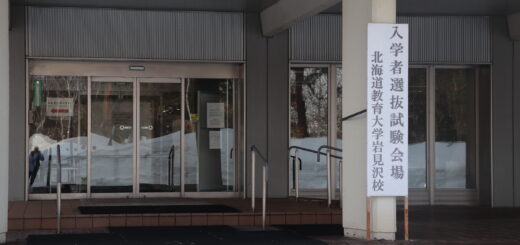 入学者選抜試験会場
北海道教育大学岩見沢校